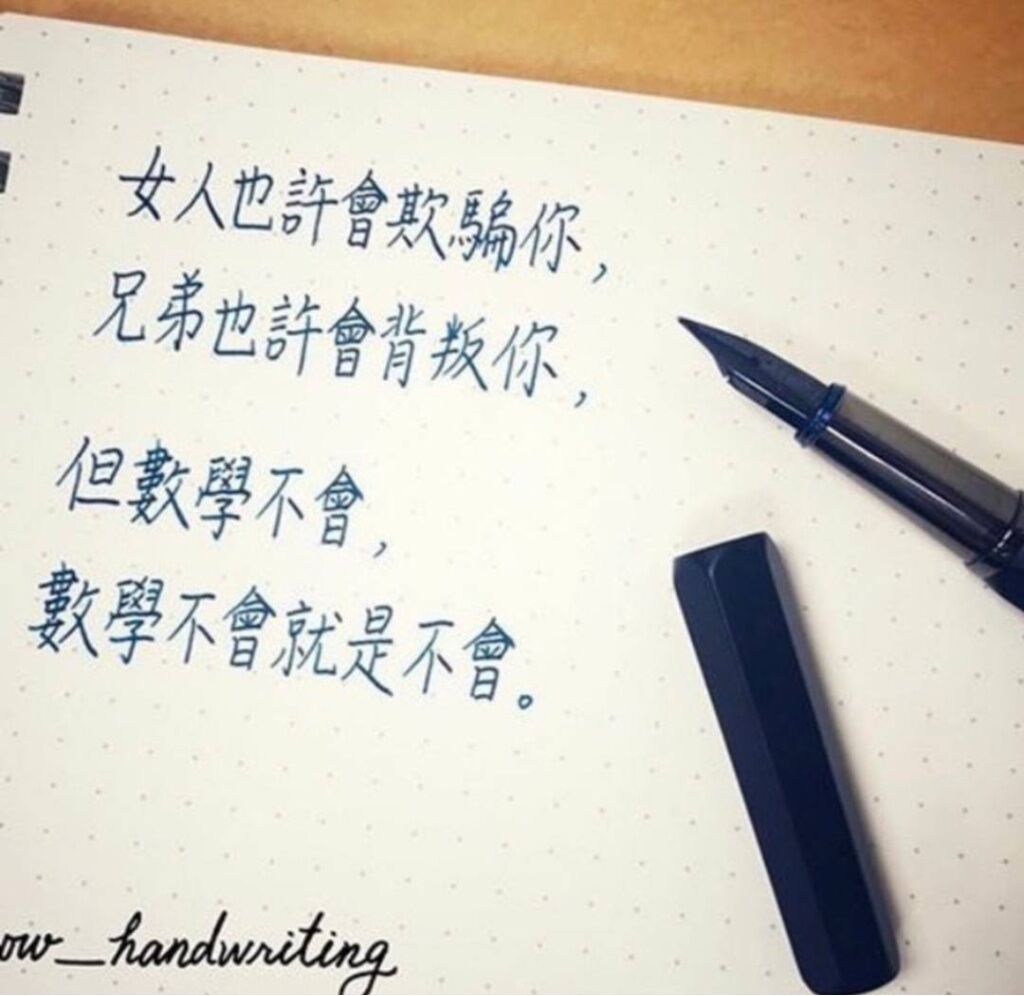 女人也許會欺騙你，
兄弟也許會背叛你，
但數學不會，
數學不會就是不會。
ow_handwriting